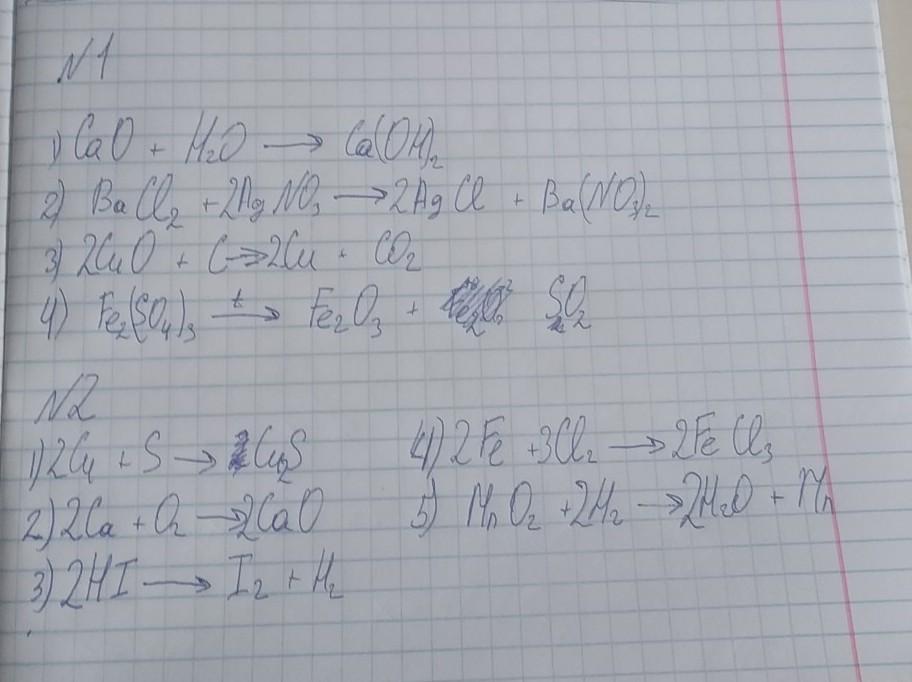 N1
1) CaO + H₂O → Ca(OH)₂
2) BaCl₂ + 2AgNO₃ → 2AgCl + Ba(NO₃)₂
3) 2CuO + C → 2Cu + CO₂
4) Fe₂(SO₄)₃ t→ Fe₂O₃ + SO₂
N2
1) 2Cu + S → Cu₂S
2) 2Ca + O₂ → 2CaO
3) 2HI → I₂ + H₂
4) 2Fe + 3Cl₂ → 2FeCl₃
5) MnO₂ + 2H₂ → 2H₂O + Mn